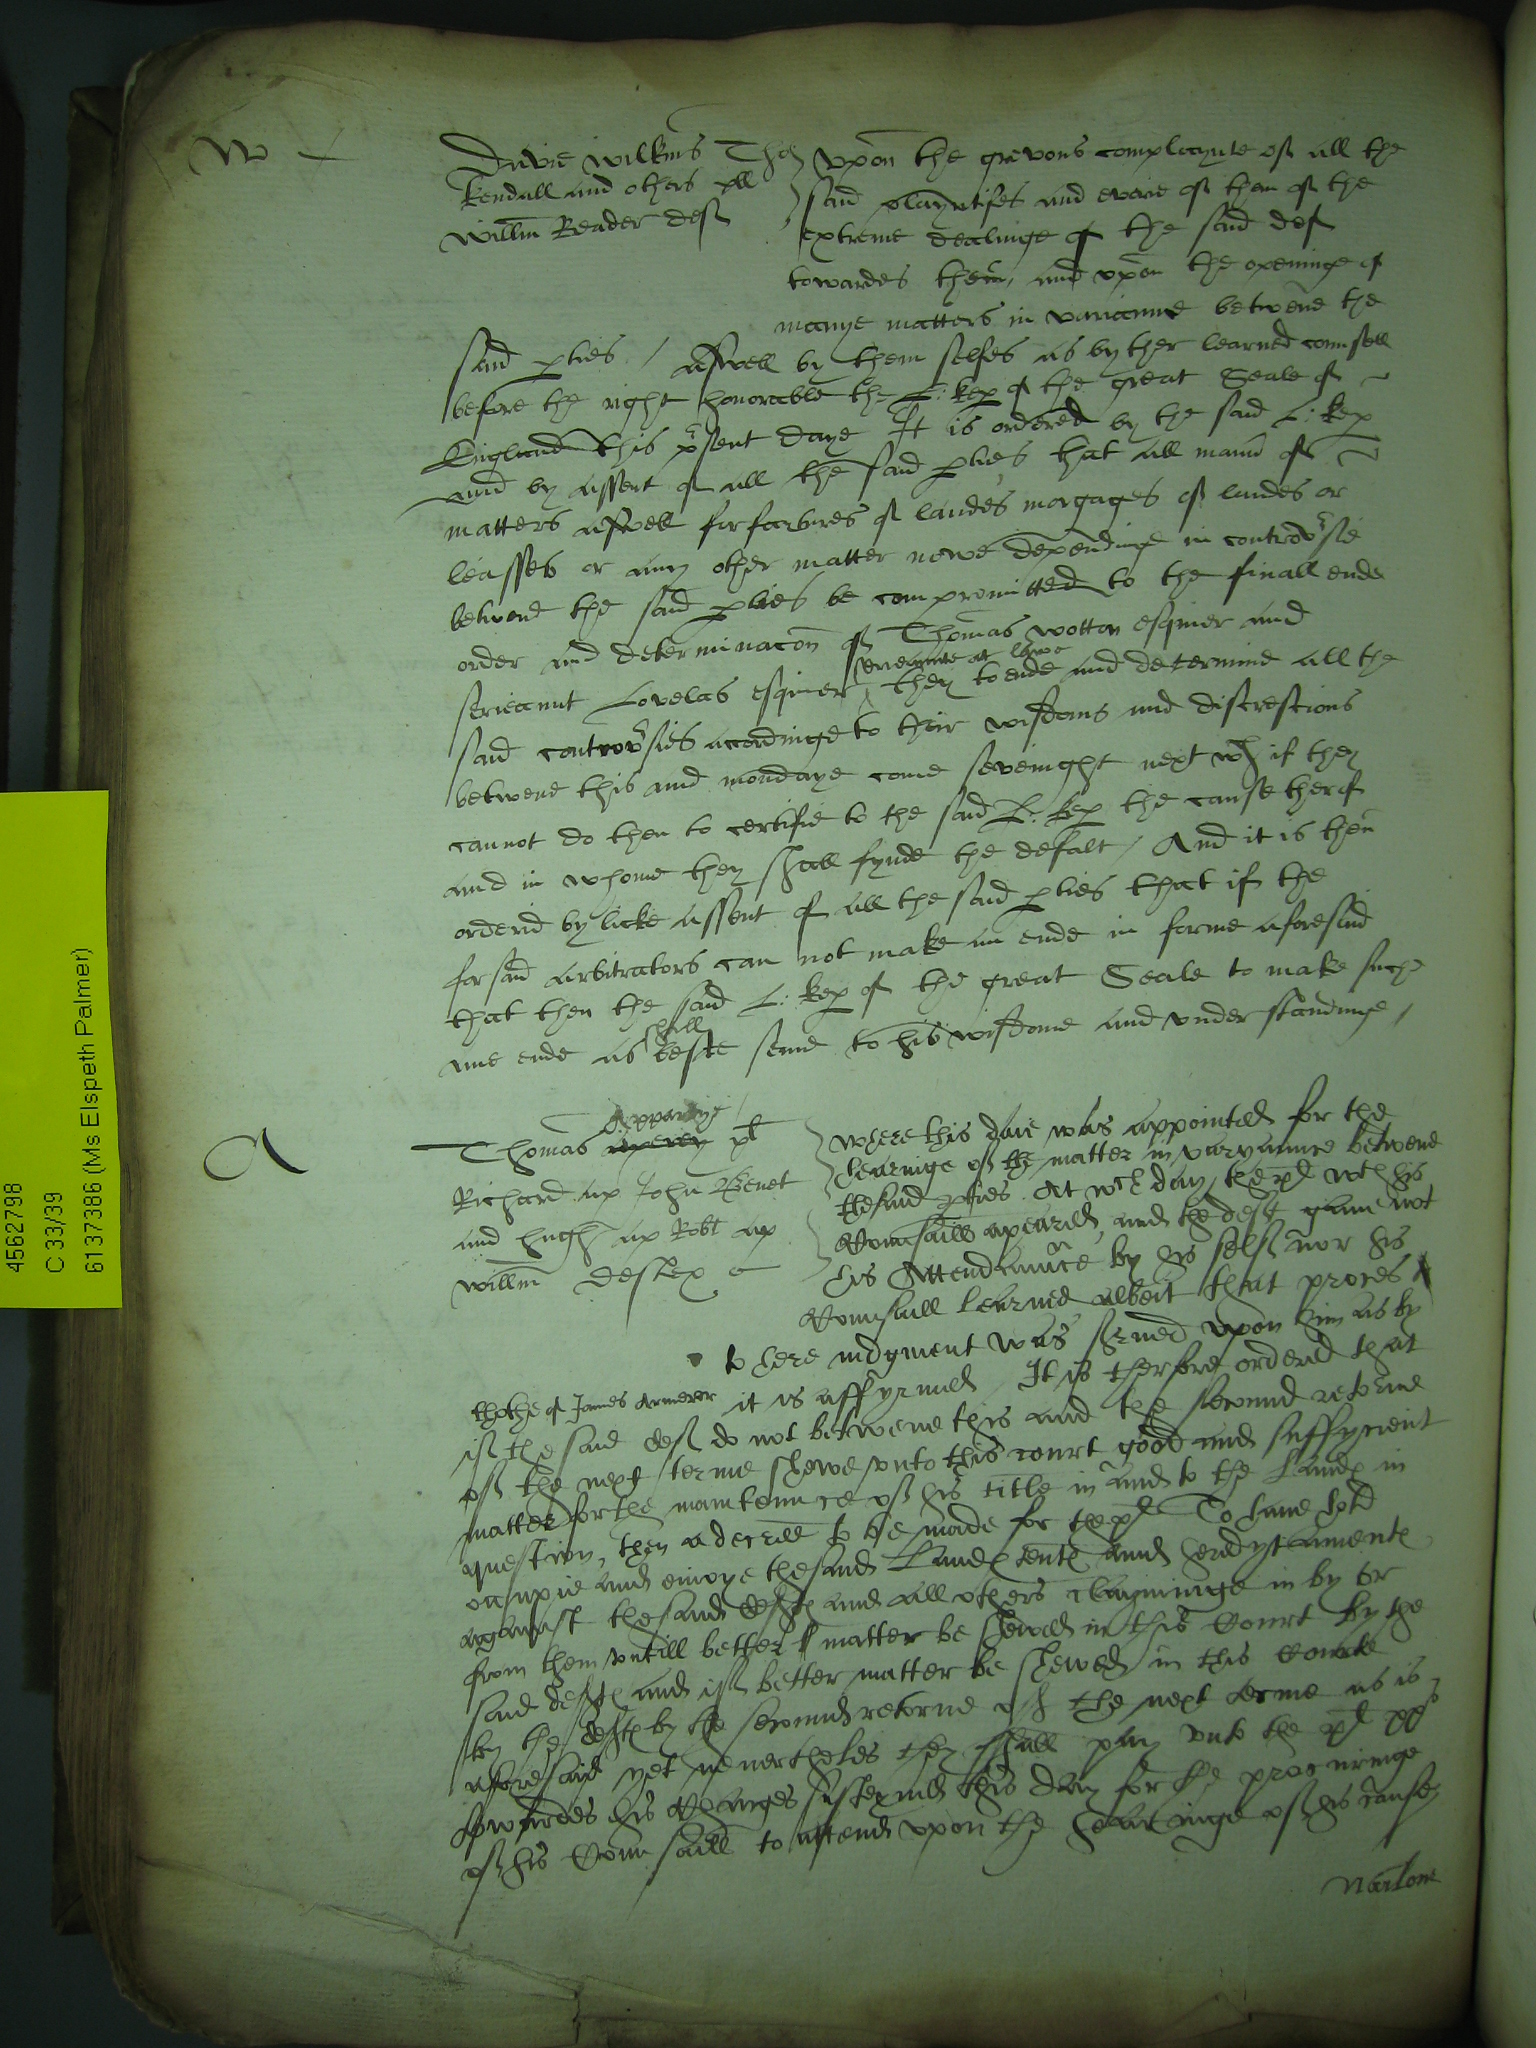 W
Davie Wilkins Tho
kendall and others pll
Willm Reader def
vpon the grevous complaynte of all the
said playntifes and everie of them of the
extreme dealinge of the said def
towardes them, and vpon the openinge of
manye matters in variannce betwene the
said pties / aswell by them selfes as by ther learned counsell
before the right honorable the L: kep of the great Seale of
England this psent daye It is ordered by the said L: kep
and by assent of all the said pties that all mannr of
matters aswell forfactures of landes morgages of landes or
leasses or any other matter nowe dependinge in controvsie
betwene the said pties be compromitted to the finall ende
order and determinacon of Thomas wotton esquier and
serieannt Lovelas esquier serieannte at lawe they to ende and determine all the
said controvsies accordinge to their wisdoms and discrescions
betwene this and mondaye come seveinght next wch if they
cannot do then to certifie to the said L: kep the cause therof
and in whome they shall fynde the defalt / And it is then
orderid by licke assent of all the said pties that if the
forsaid arbitrators can not make an ende in forme aforesaid
that then the said L: kep of the great Seale to make suche
ane ende as shall beste seme to his wisdome and understandinge /
A
Thomas apperey pl
Richard ap John
and hugh ap Robt ap
willm
where this daie was appointed for the
hearinge of the matter in varyannce betwene
the said pties. At wch day the pl wth his
Counsaill apearid, and the deft gave not
his Attendannce by his self nor his
Counsaill learned albeit that proces
to here judgment was served vpon him as by
thothe of James Armerer it is affyrmed It is therfore ordered that
if the said def do not betwene this and the second retorne
of the next terme shewe unto this court good and suffycient
matter for the maintennce of his title in and to the Landes in
question, then a decree to be made for the pl To have hold
occupie and enioye the said Landes tentes and heredytamentes
against the said deftes and all others clayminge in by or
from them vntill better matter be shewed in this Court by the
said deftes and if better matter be shewed in this Courte
by the deftes by the second retorne of the next terme as is
aforesayd yet neuertheles they shall pay vnto the pl xxs
towardes his Charges susteyned this day for the procuringe
of his Counsaill to attend vpon the hearinge of his cause